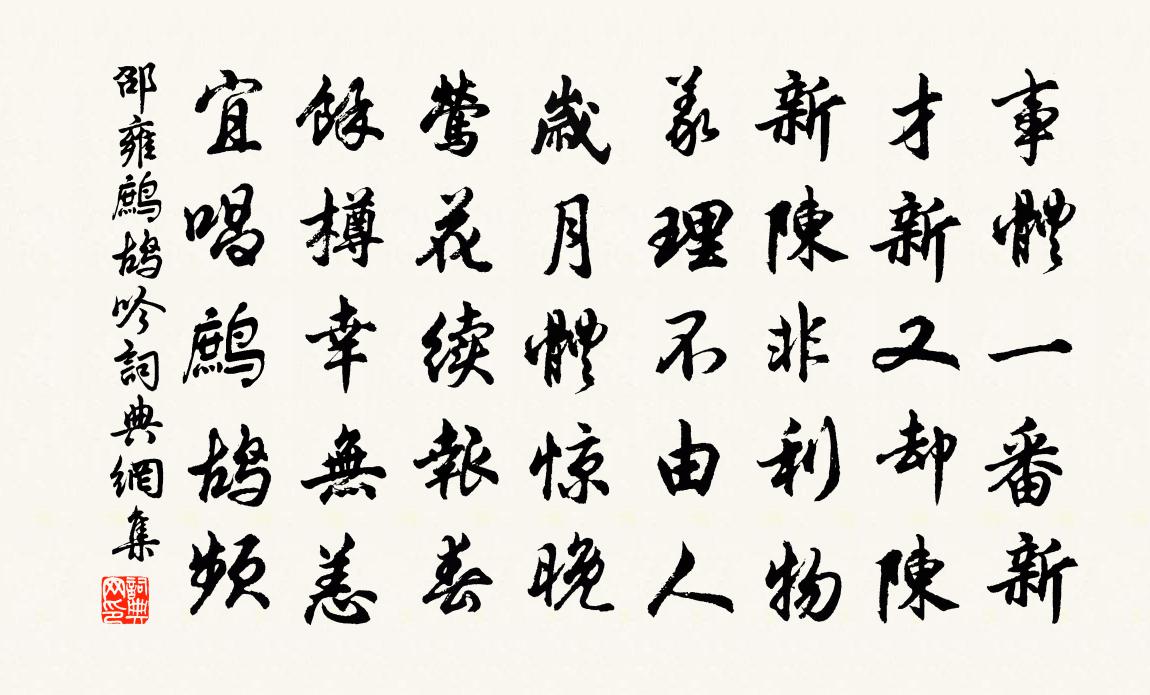 事體一番新
才新又却陳
新陳非利物
義理不由人
歲月體惊晚
鶯花续報春
餘樽幸無恙
宜唱鷓鴣頻
邵雍鷓鴣吟詞典網集